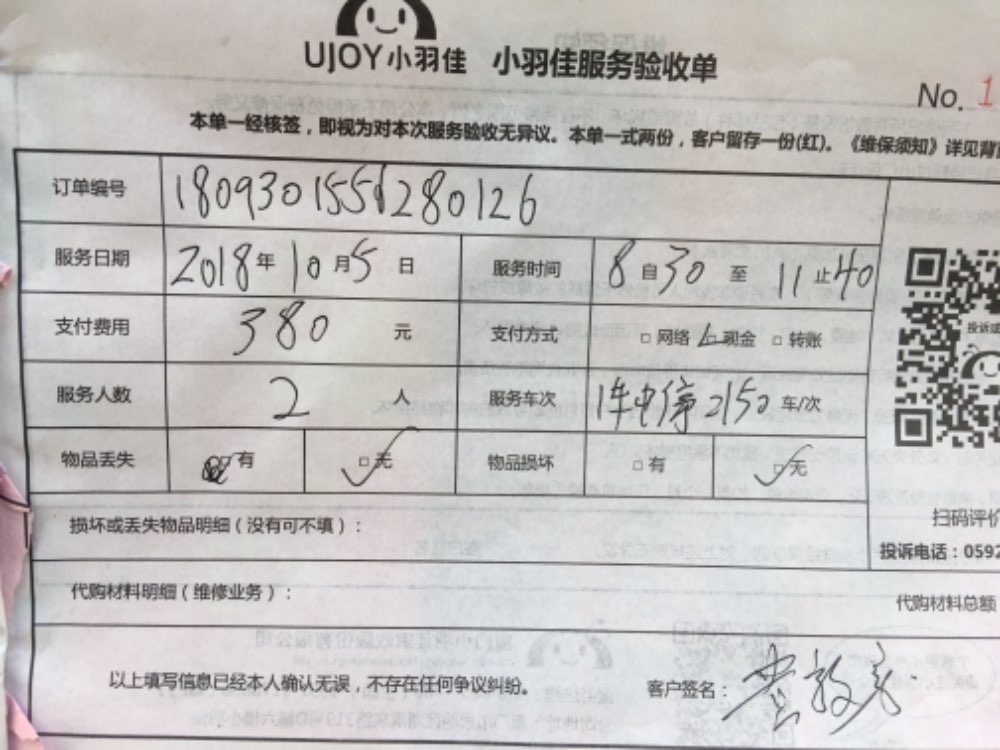 UJOY小羽佳 小羽佳服务验收单
No. 1
本单一经核签，即视为对本次服务验收无异议。本单一式两份，客户留存一份(红)。《维保须知》详见背
订单编号 1809301556280126
服务日期 2018年10月5日 服务时间 8自30至11止40
支付费用 380元 支付方式 □网络 □现金 □转账
服务人数 2人 服务车次 150 车/次
物品丢失 有 □无 物品损坏 □有 □无
损坏或丢失物品明细（没有可不填）：
扫码评价
投诉电话：0592
代购材料明细（维修业务）：
代购材料总额
以上填写信息已经本人确认无误，不存在任何争议纠纷。 客户签名：